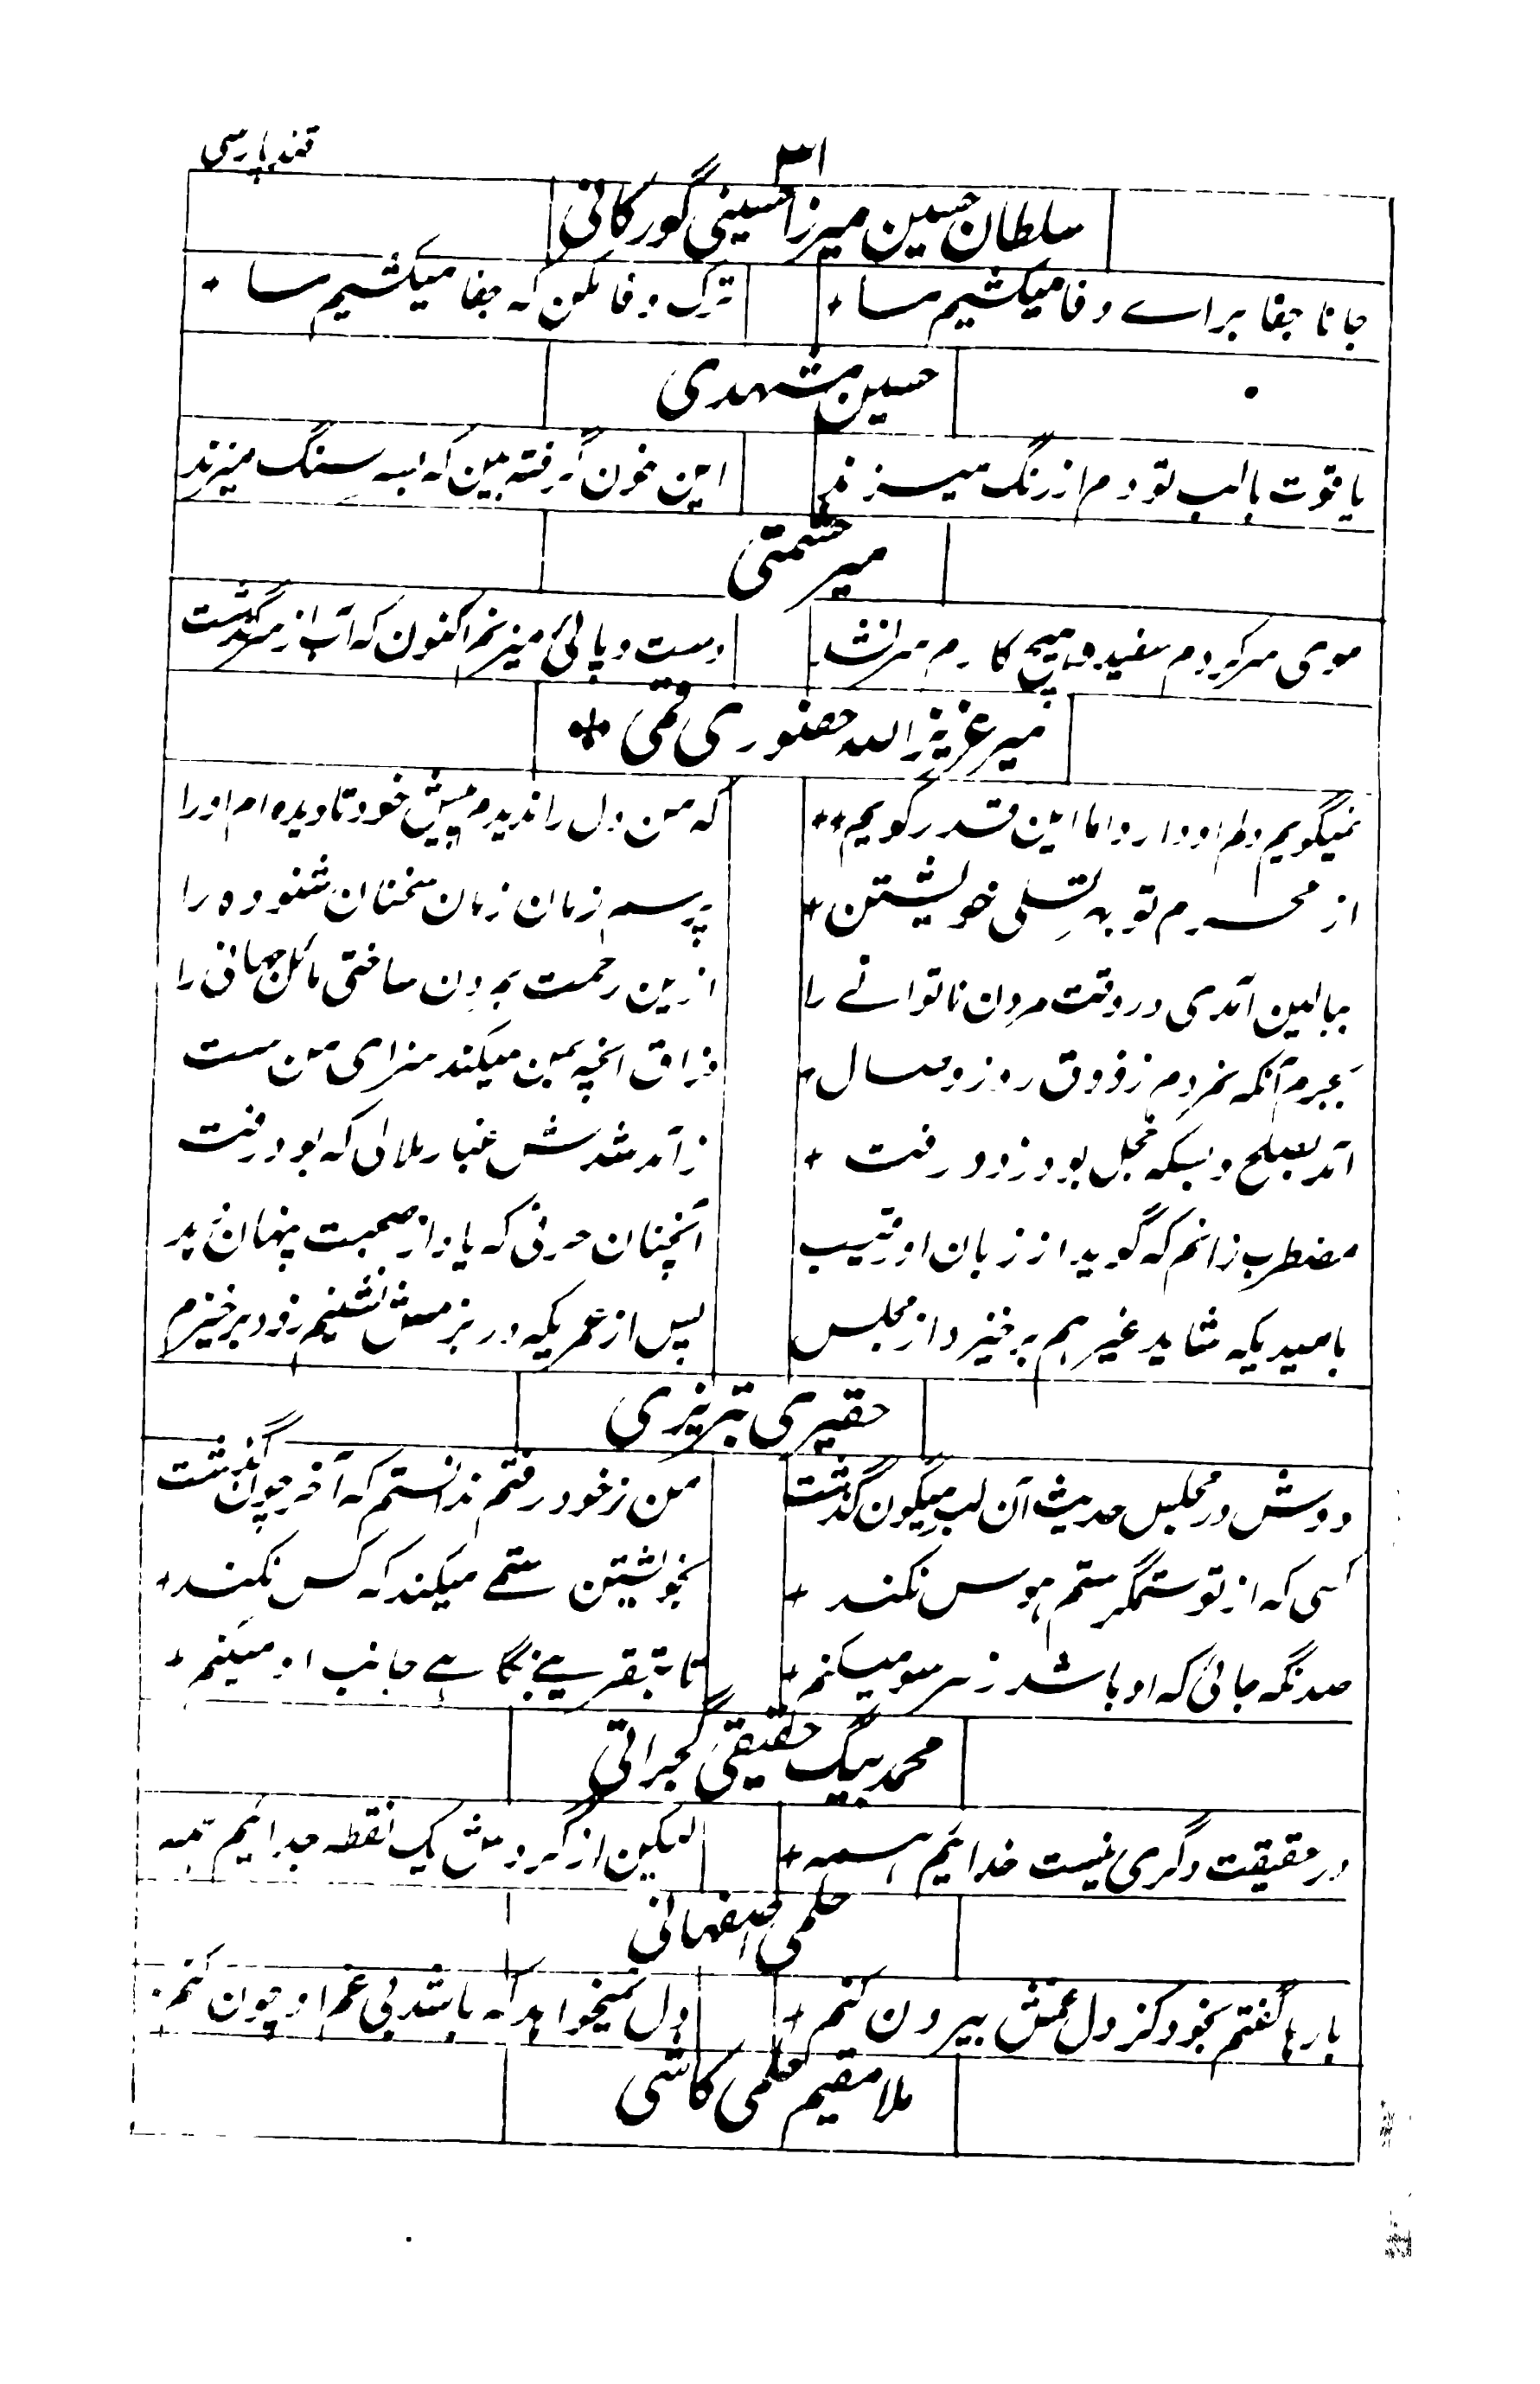 ۳۱
قند پارسی
سلطان حسین میرزا حسینی گورکانی
جانا جفا براے وفا میکشیم ما + ترک وفا مکن که جفا میکشیم ما +
حسین مشهدی
یاقوت با لب تو دم از رنگ میزند این خون گرفته بین که چه سنگ میزند
میر حشمتی
موی سر کردم سفید و هیچ کارم سر نشد دست و پائی میزنم اکنون که آب از سر گذشت
میر عزیز الله حضوری قمی
نمیگویم دلم او دارد اما این قدر گویم ++ که من دل را ندیدم پیش خود تا دیده ام او را
از محرم تو بهر تسلی خویشتن + پرسم زمان زمان سخنان شنوده را
ببالین آمدی در وقت مردن ناتوانے را ازین رحمت بمردن ساختی مائل جهانی را
بجرم آنکه نمردم ز ذوق روز وصال + فراق آنچه بمن میکند سزای من ست
آمد بصلح و بسکه خجل بود زود رفت + ز آمد شدش غبار ملالی که بود رفت
مضطرب زانم که گوید از زبان او رقیب آنچنان حرفی که یاد از صحبت پنهان دهد
بامیدیکه شاید غیر هم برخیزد از مجلس پس از عمریکه در بزمش نشینم زود برخیزم
حقیری تبریزی
دوش در مجلس حدیث آن لب میگون گذشت من ز خود رفتم ندانستم که آخر چون گذشت
کسی که از تو ستمگر ستم هوس نکند + بخویشتن ستمے میکند که کس نکند +
صد نگه جائی که او باشد ز هر سو میکنم + تا بتقریبے نگاهے جانب او میکنم +
محمد بیگ حقیقی گجراتی
در حقیقت دگری نیست خدائیم همه + لیکن از گردش یک نقطه جدائیم همه
حلمی اصفهانی
بارها گفتم بخود کز دل غمش بیرون کنم + دل نمیخواهد که باشد بی غم او چون کنم
ملا مقیم حلمی کاشی